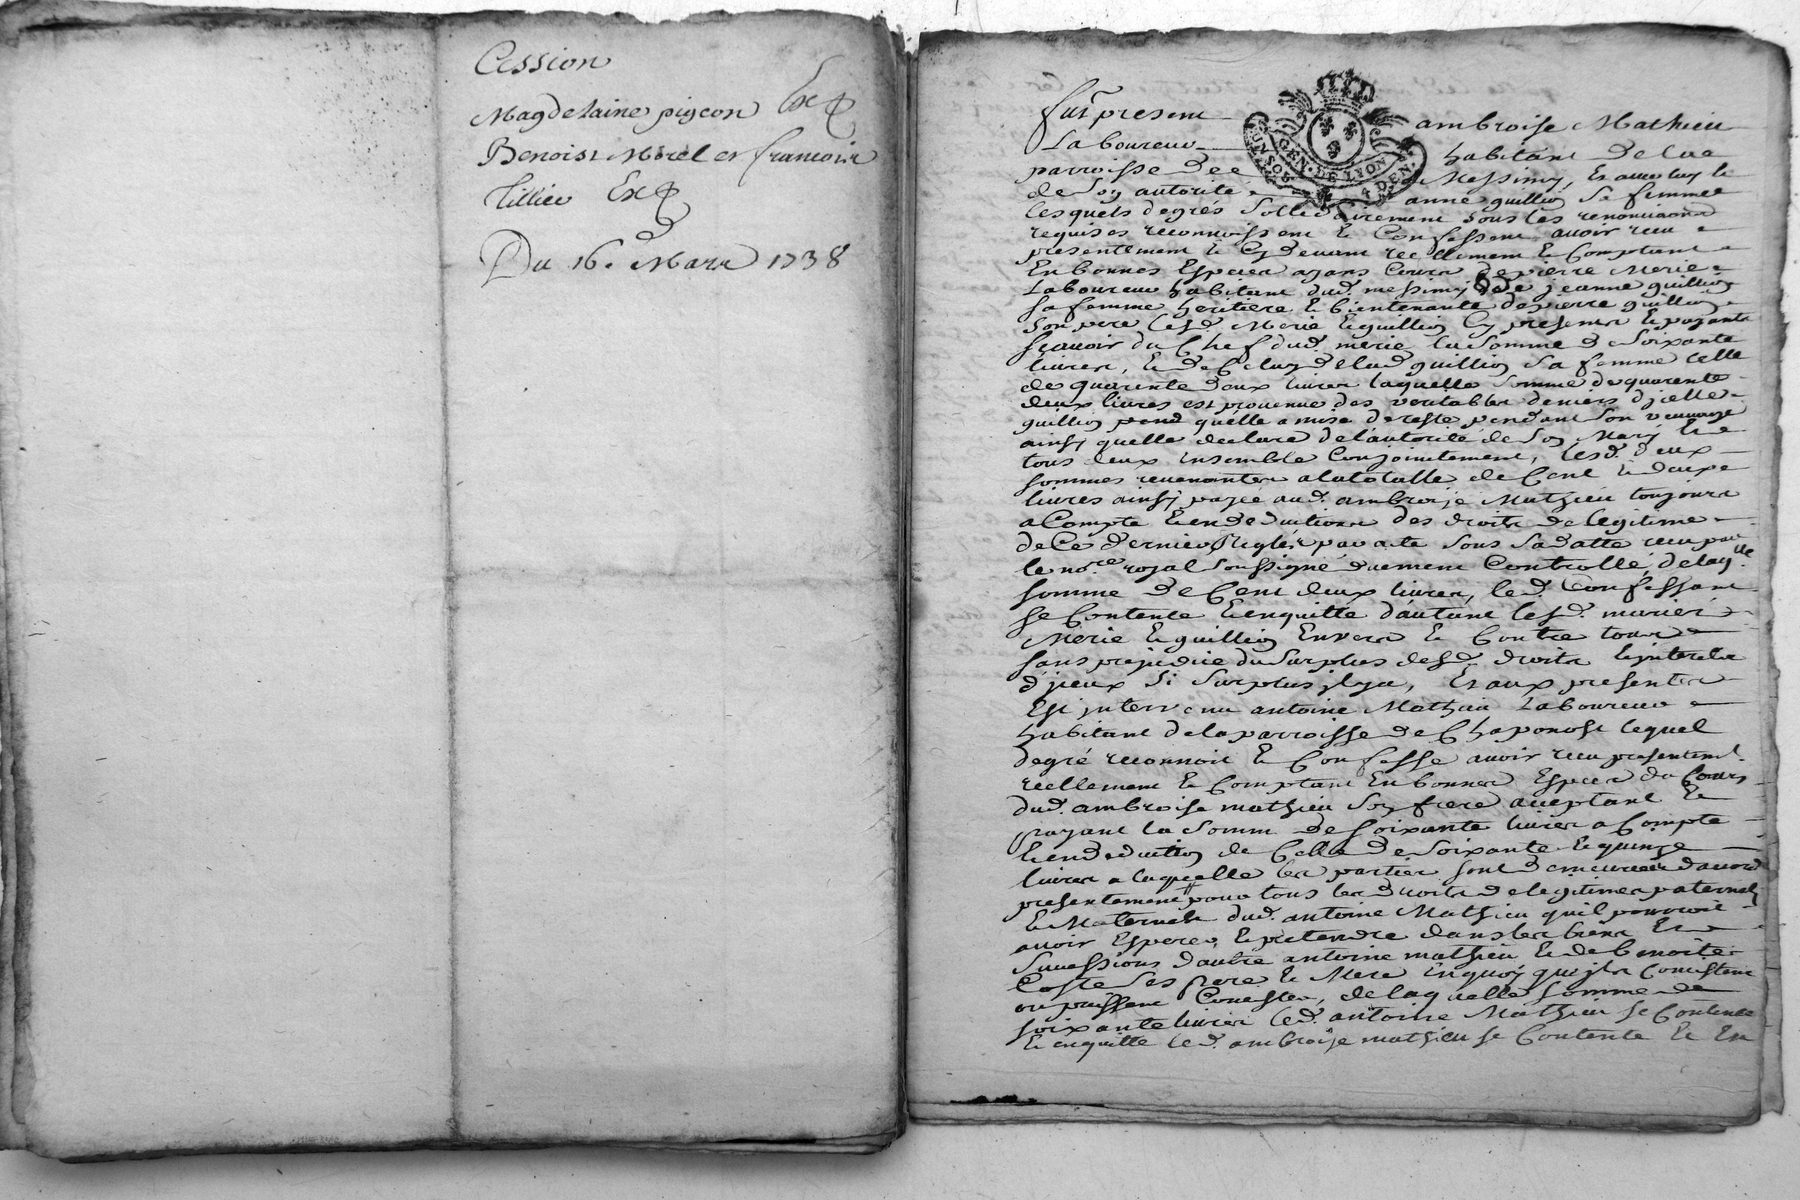 Cession
Magdelaine pigeon Exp
Benoist Morel et francois
Tillieu Exp
Du 16e. Mars 1738
furt present ambroise Mathieu
Laboureur habitant de la
parroisse de Messimy, Et avec luy le
de soy autorite anne guillion Sa femme
UN SOL GEN. DE LYON 4 DEN.
lesquels de grés sollidairement sous les renonciaons
requises reconnoissent Et Confessent avoir recu
presentement Et Cydevant reellement Et Comptant
En bonnes Especes ayans Cours de pierre Merie
Laboureur habitant dud. messimy & de jeanne guillion
Sa femme heritiere Et bientenante de pierre guillion
Son pere lesd. Merie Et guillion Cy presents Et payants
scavoir du Chef dud. merie la somme de Soixante
livres, Et de Celuy de lad. guillion Sa femme Celle
de quarente deux livres laquelle Somme de quarente
deux livres est provenue des veritables deniers d'jcelle
guillion quelle a mise de reste pendant son veuvage
ainsy quelle declare de lautorité de Son Mary Et
tous deux Ensemble Conjointement, lesd. deux
sommes revenantes a la totalle de Cent Et deux
livres ainsy payée aud. ambroise Mathieu toujours
a Compte Et en deductions des droits de legitime
de Ce dernier Reglés par acte sous sa datte recu par
le nore. royal soussigné duement Controllé, de laqlle
somme de Cent deux livres, led. Confessant
se Contente Et enquitte d'autant lesd. mariés
Merie Et guillion Envers Et Contre tous
sans prejudice du Surplus desd. droits Et jnterets
d'jceux Si Surplus jl y a, Et aux presentes
Est jntervenu antoine Mathieu Laboureur
habitant de la parroisse de Chaponost lequel
de gré reconnoit Et Confesse avoir recu presentemt.
reellement Et Comptant En bonnes Especes du Cours
dud. ambroise mathieu Son frere acceptant Et
payant la Somme de soixante livres a Compte
Et en deduction de Celle de Soixante Et quinze
livres a laquelle les parties sont demeurées d'accord
presentement pour tous les droits de legitimes paternels
Et Maternels dud. antoine Mathieu quil pourroit
avoir Esperer, Et pretendre dans les biens Et
Successions d'autre antoine mathieu Et de benoite
Coste Ses pere Et Mere En quoy qu'jls Consistent
ou puissent Consister, de laquelle somme de
soixante livres led. antoine Mathieu se Contente
Et enquitte led. ambroise mathieu se Contente Et En